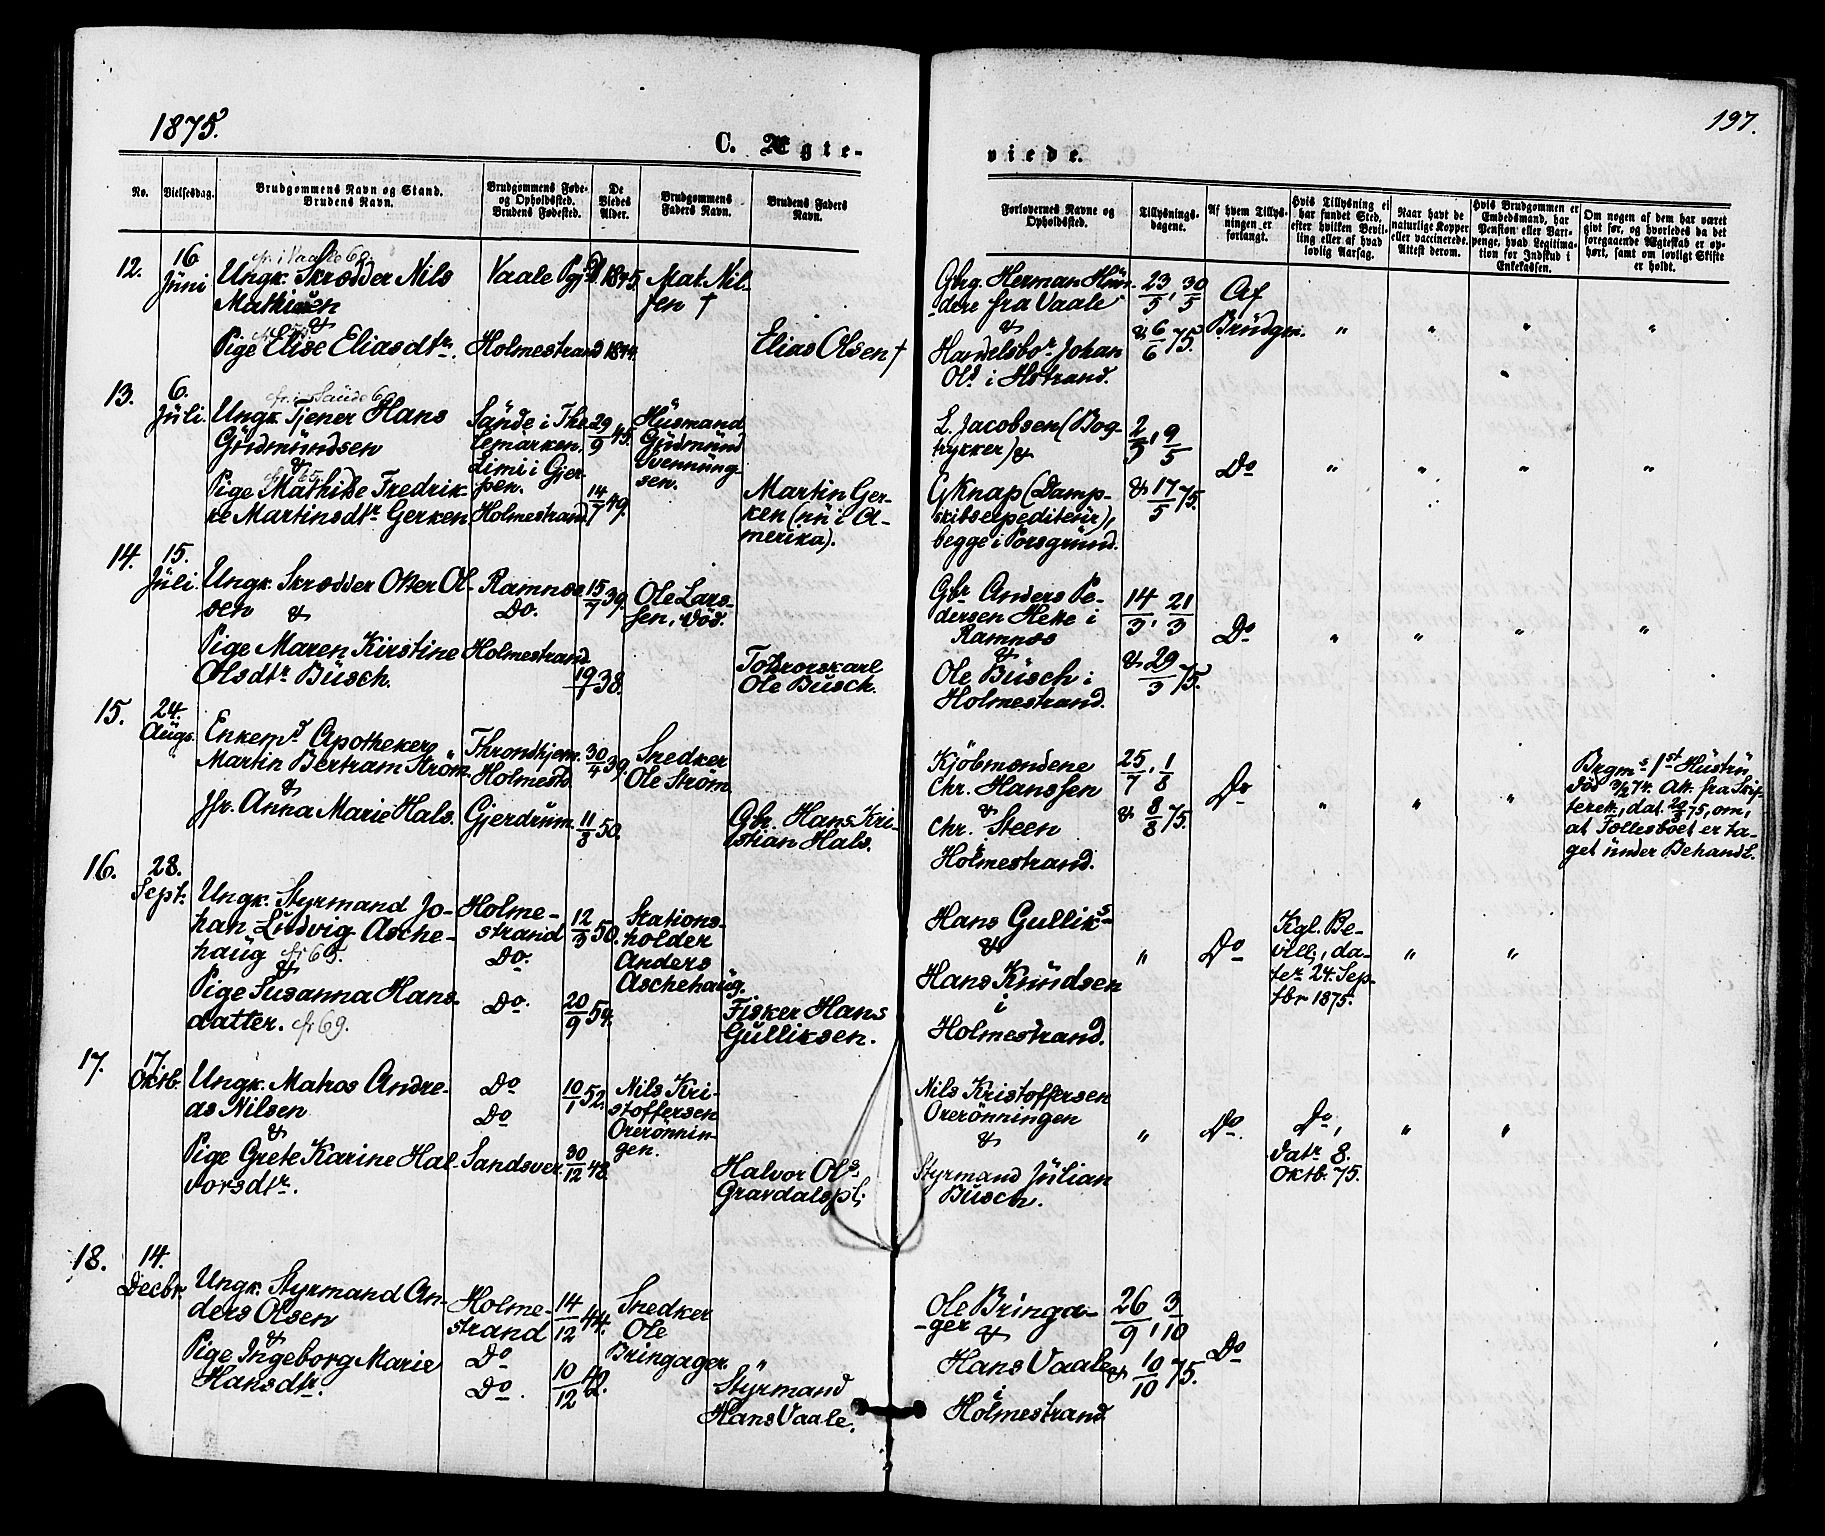 1875.
197.
C. Ægte-
viede.
No.
Vielsesdag.
Brudgommens Navn og Stand.
Brudens Navn.
Brudgommens Føde-
og Opholdssted.
Brudens Fødested.
De
Viedes
Alder.
Brudgommens
Faders Navn.
Brudens Faders
Navn.
Forlovernes Navne og
Opholdssted.
Tillysnings-
dagene.
Af hvem Tillys-
ningen er
forlangt.
Hvis Tillysning ei
har fundet Sted,
efter hvilken Bevil-
ling eller af hvad
lovlig Aarsag.
Naar havt de
naturlige Kopper
eller vaccinerede.
Attest derom.
Hvis Brudgommen er
Embedsmand, har
Pension eller Vart-
penge, hvad Legitima-
tion for Indskud i
Enkekassen.
Om nogen af dem har været
givt før, og hvorledes da det
foregaaende Ægteskab er op-
hørt, samt om lovligt Skifte
er holdt.
12.
16
Juni
cfr. i Vaale 60.
Ungk. Skrædder Nils
Mathisen
&
Pige Elise Eliasdtr.
Vaale Pgj.
Holmestrand
1845.
1844.
Mat. Nil-
sen †
Elias Olsen †
Gbrg. Herman Hün-
dere fra Vaale
&
Handelsbor. Johan
Ols i Hstrand.
23/5, 30/5
& 6/6 75.
Af
Brudgm.
" " " "
13.
6.
Juli.
cfr. i Sande 60
Ungk. Tjener Hans
Gudmundsen
&
cfr. 65
Pige Mathilde Fredrik-
ke Martinsdtr Gerken
Sande i The-
lemarken.
Limi i Gjer-
pen.
Holmestrand
29/9 45.
14/7 49.
Husmand
Gudmund
Svennung-
sen.
Martin Ger-
ken (nu i A-
merika).
L. Jacobsen (Bog-
trykker) &
G Knap (Damp-
skibsexpediteur),
begge i Porsgrund.
2/5, 9/5
& 17/5 75.
Do
" " " "
14.
15.
Juli.
Ungk. Skrædder Otter Ol-
sen &
Pige Maren Kirstine
Olsdtr Busch.
Ramnæs
Do.
Holmestrand
15/7 39.
19/7 38.
Ole Lars-
sen, død.
Toldrorskarl
Ole Busch.
Gbr Anders Pe-
dersen Heke i
Ramnæs
&
Ole Busch i
Holmestrand.
14/3, 21/3
& 29/3 75.
Do
" " " "
15.
24.
Augs.
Enkemd Apotheker
Martin Bertram Strøm
&
Jfr. Anna Marie Hals.
Throndhjem.
Holmestd.
Gjerdrum.
30/4 39.
11/3 50.
Snedker
Ole Strøm
Gbr. Hans Kri-
stian Hals.
Kjøbmændene
Chr. Hanssen
&
Chr. Steen
i
Holmestrand.
25/7, 1/8
& 8/8 75.
Do
" " "
Brgms 1st Hustru
død 3/2 74. Att. fra Skif-
terek., dat. 20/8 75, om,
at Fællesboet er ta-
get under Behandl.
16.
28.
Sept.
Ungk. Styrmand Jo-
han Ludvig Asche-
haug cfr 65.
&
Pige Susanna Hans-
datter. cfr 69.
Holme-
strand
Do.
Do.
12/3 50.
20/9 54.
Stations-
holder
Anders
Aschehaug.
Fisker Hans
Gulliksen.
Hans Gulliks
&
Hans Knudsen
i
Holmestrand.
"
Do
Kgl. Be-
vill., da-
ter 24. Sep-
tbr 1875.
" "
17.
17.
Oktb.
Ungk. Matros Andre-
as Nilsen
&
Pige Grete Karine Hal-
vorsdtr.
Do
Do
Sandsver.
10/1 52.
30/12 48.
Nils Kri-
stoffersen
Orerønnin-
gen.
Halvor Ols
Gravdalspl.
Nils Kristoffersen
Orerønningen
&
Styrmand Julian
Busch.
"
Do.
Do,
datr 8.
Oktb. 75.
" "
18.
14.
Decbr.
Ungk. Styrmand An-
ders Olsen
&
Pige Ingeborg Marie
Hansdtr.
Holme-
strand
Do
Do.
14/12 44.
10/12 42.
Snedker
Ole
Bringager
"
Styrmand
Hans Vaale.
Ole Bringa-
-ger
&
Hans Vaale
i
Holmestrand
26/9, 3/10
& 10/10 75.
Do